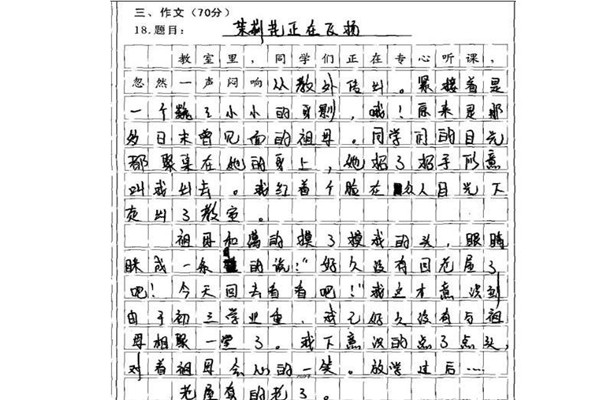 三、作文（70分）
18.题目：紫荆花正在飞扬
教室里，同学们正在专心听课，
忽然一声闷响从教外传出。紧接着是
一个瘦了小小的身影，哦！原来是那
多日未曾见面的祖母。同学们的目光
都聚集在她的身上，她招了招手所意
叫我出去。我红着个脸在众人目光下
走出了教室。
祖母和蔼的摸了摸我的头，眼睛
眯成一条的说：“好久没有回老屋了
吧！今天回去看看吧！”我这才意识到
由于初三学业重，我已好久没有与祖
母相聚一堂了。我下意识的点了点头，
对着祖母会心的一笑。放学过后……
老屋真的老了。